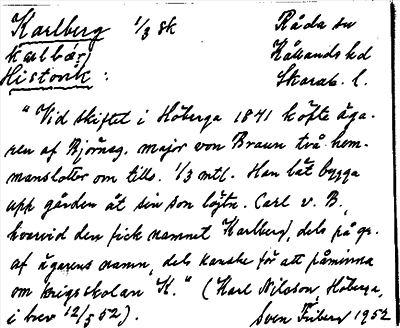 Karlberg 1/3 sk Råda sn
karlbärj Kållands hd
Historik: Skarab. l.
"Vid skiftet i Höberga 1841 köfte äga-
ren af Björnäg. major von Braun två hem-
manslotter om tills. 1/3 mtl. Han lät bygga
upp gården åt sin son löjtn. Carl v. B.,
hvarvid den fick namnet Karlberg, dels på gr.
af ägarens namn, dels kanske för att påminna
om krigsskolan K." (Karl Nilsson Höberga,
i brev 12/5 52). Sven Friberg 1952